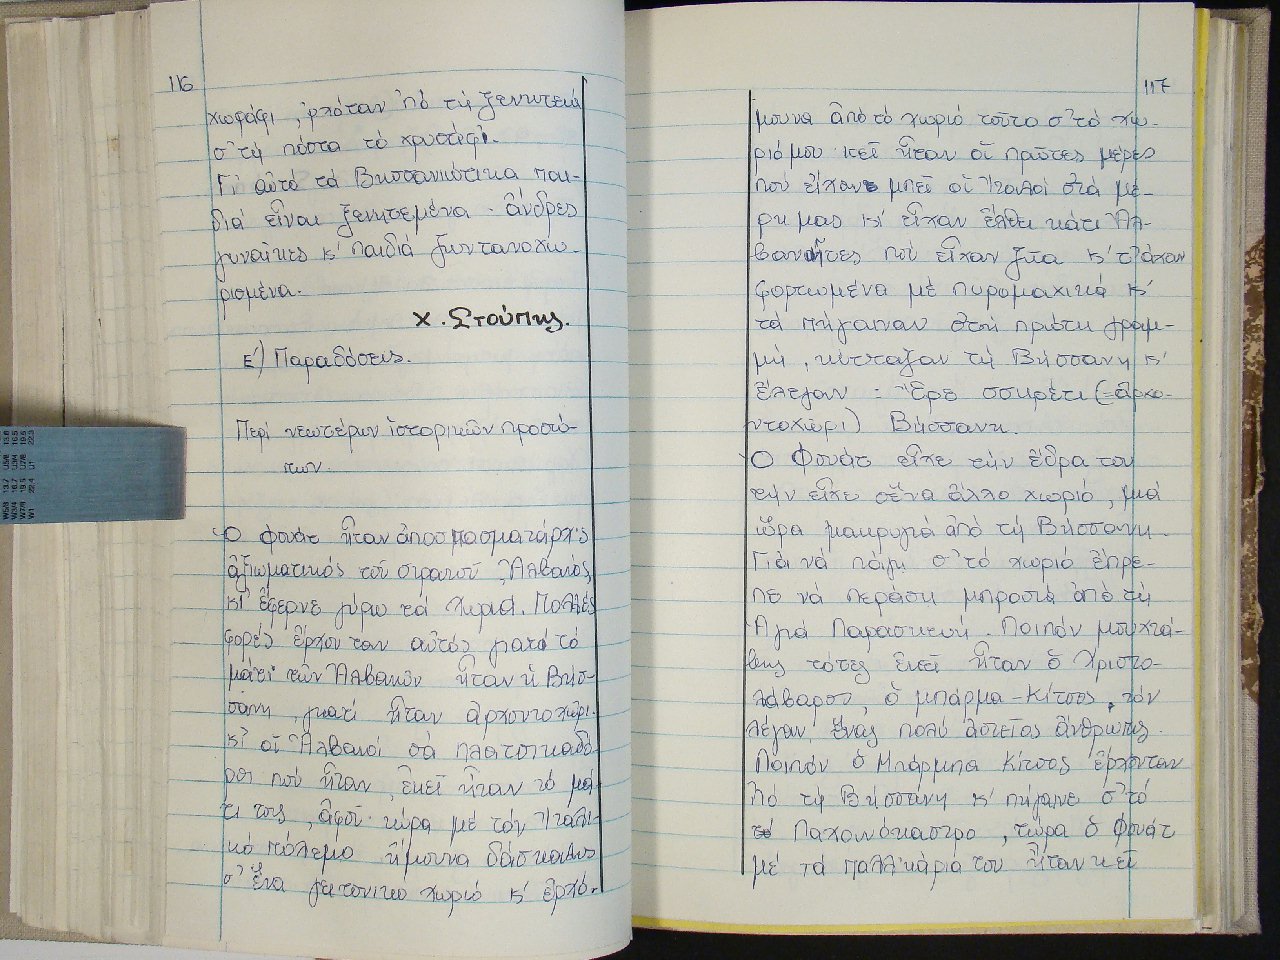 116
χωράφι, ἐρχόταν 'πὸ τὴ ξενιτειά
σ'τὴ πόστα τὸ χρυσάφι.
Γι' αὐτὸ τὰ Βησσανιώτικα παι-
διά εἶναι ξενιτεμένα. ἄνδρες
γυναῖκες κ' παιδιά ζωντανοχω-
ρισμένα.
Χ. Στούπης.
Ε') Παραδόσεις.
Περὶ νεωτέρων ἱστορικῶν προσώ-
πων.
Ὁ Φουάτ ἦταν ἀποσπασματάρχης
ἀξιωματικός τοῦ στρατοῦ, Ἀλβανός,
κι' ἔφερνε γύρω τὰ χωριά. Πολλές
φορές ἔρχονταν αὐτός γιατί τό
μάτι τῶν Ἀλβανῶν ἦταν ἡ Βήσ-
σανη, γιατί ἦταν ἀρχοντοχώρι.
κι' οἱ Ἀλβανοί σά πλιατσικαδό-
ροι πού ἦταν, ἐκεῖ ἦταν τό μά-
τι τους, ἀφοῦ τώρα μέ τόν Ἰταλι-
κό πόλεμο ἤμουνα δάσκαλος
σ' ἕνα γειτονικό χωριό κ' ἐρχό-
117
μουνα ἀπό τό χωριό τοῦτο σ'τό χω-
ριό μου κεῖ ἦταν οἱ παῦτες μέρες
πού εἴχανε μπεῖ οἱ Ἰταλοί στά μέ-
ρη μας κι' εἶχαν ἔλθει κάτι Ἀλ-
βανοῖτες πού εἶχαν ζῶα κ' τ'ἄχαν
φορτωμένα μέ πυρομαχικά κ'
τά πήγαιναν στή πρώτη γραμ-
μή, κύτταζαν τή Βήσσανη κ'
ἔλεγαν : "Ἔρε σσικρέτι (=ἀρχο-
ντοχώρι) Βήσσανη.
Ὁ Φουάτ εἶχε τήν ἕδρα του
τήν εἶχε σ'ἕνα ἄλλο χωριό, μιά
ὥρα μακρυγιά ἀπό τή Βήσσανη.
Γιά νά πάγη σ'τό χωριό ἔπρε-
πε νά περάση μπροστά ἀπό τή
Ἁγιά Παρασκευή. Λοιπόν μουχτά-
ρης τότες ἐκεῖ ἦταν ὁ Χριστο-
χάβαρος, ὁ μπάρμα-Κίτσος, τόν
λέγαν ἕνας πολύ ἀστεῖος ἄνθρωπος.
Λοιπόν ὁ Μπάρμπα Κίτσος ἔρχονταν
πό τή Βήσσανη κ' πήγαινε σ'τό
Παλιόκαστρο, τώρα ὁ Φουάτ
μέ τά παλληκάριά του ἦταν κεῖ